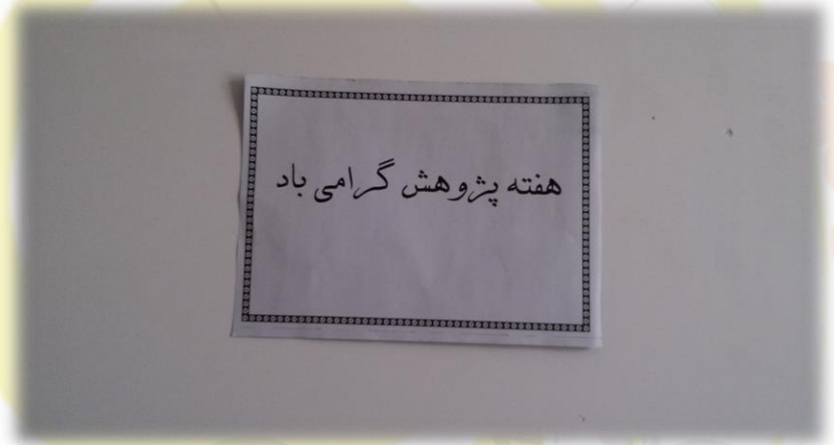 هفته پژوهش گرامی باد